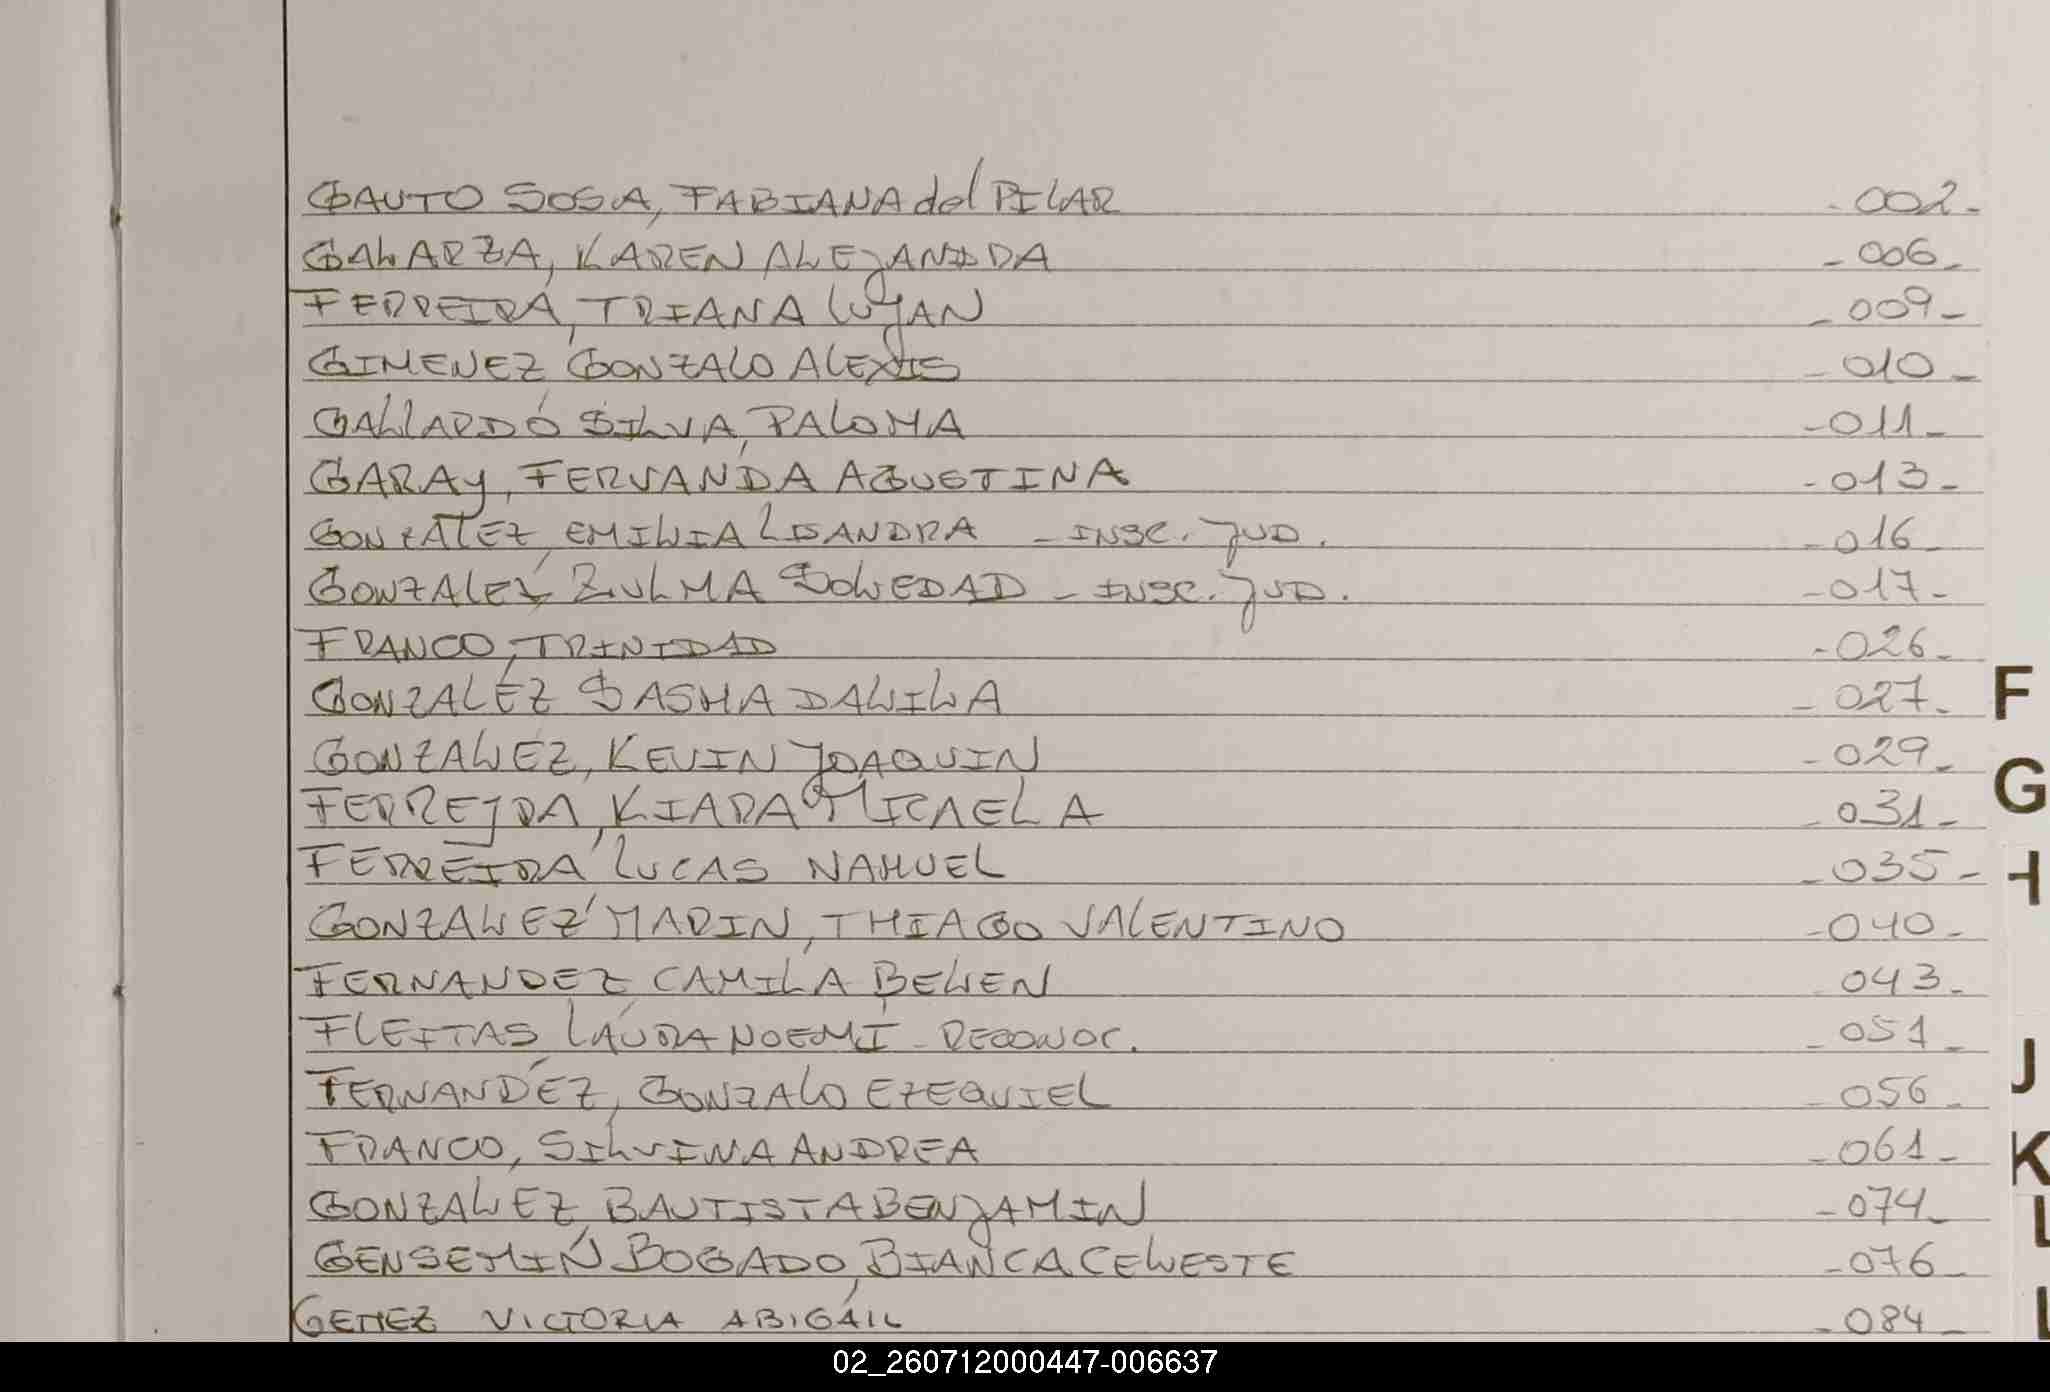 GAUTO SOSA, FABIANA del PILAR -002-
GALARZA, KAREN ALEJANDRA -006-
FERREIRA, TRIANA LUJAN -009-
GIMENEZ, GONZALO ALEXIS -010-
GALLARDO SILVA, PALOMA -011-
GARAY, FERNANDA AGUSTINA -013-
GONZALEZ, EMILIA LISANDRA - INSC. JUD. -016-
GONZALEZ, ZULMA SOLEDAD - INSC. JUD. -017-
FRANCO, TRINIDAD -026-
GONZALEZ SASHA DALILA -027-
GONZALEZ, KEVIN JOAQUIN -029-
FERREIRA, KIARA MICAELA -031-
FERREIRA, LUCAS NAHUEL -035-
GONZALEZ MARIN, THIAGO VALENTINO -040-
FERNANDEZ, CAMILA BELEN 043-
FLEITAS, LAURA NOEMI - RECONOC. -051-
FERNANDEZ, GONZALO EZEQUIEL -056-
FRANCO, SILVINA ANDREA -061-
GONZALEZ, BAUTISTA BENJAMIN -074-
GENSEMIN BOGADO, BIANCA CELESTE -076-
GEMEZ VICTORIA ABIGAIL -084-
F
G
H
J
K
L
02_260712000447-006637